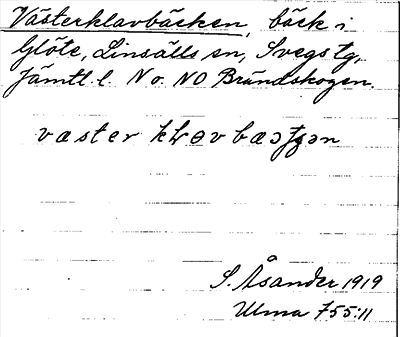 Västerklavbäcken, bäck i
Glöte, Linsälls sn, Svegs tg,
Jämtl. l. N o. NO Brändskogen.
S. Åsander 1919
Ulma 755:11